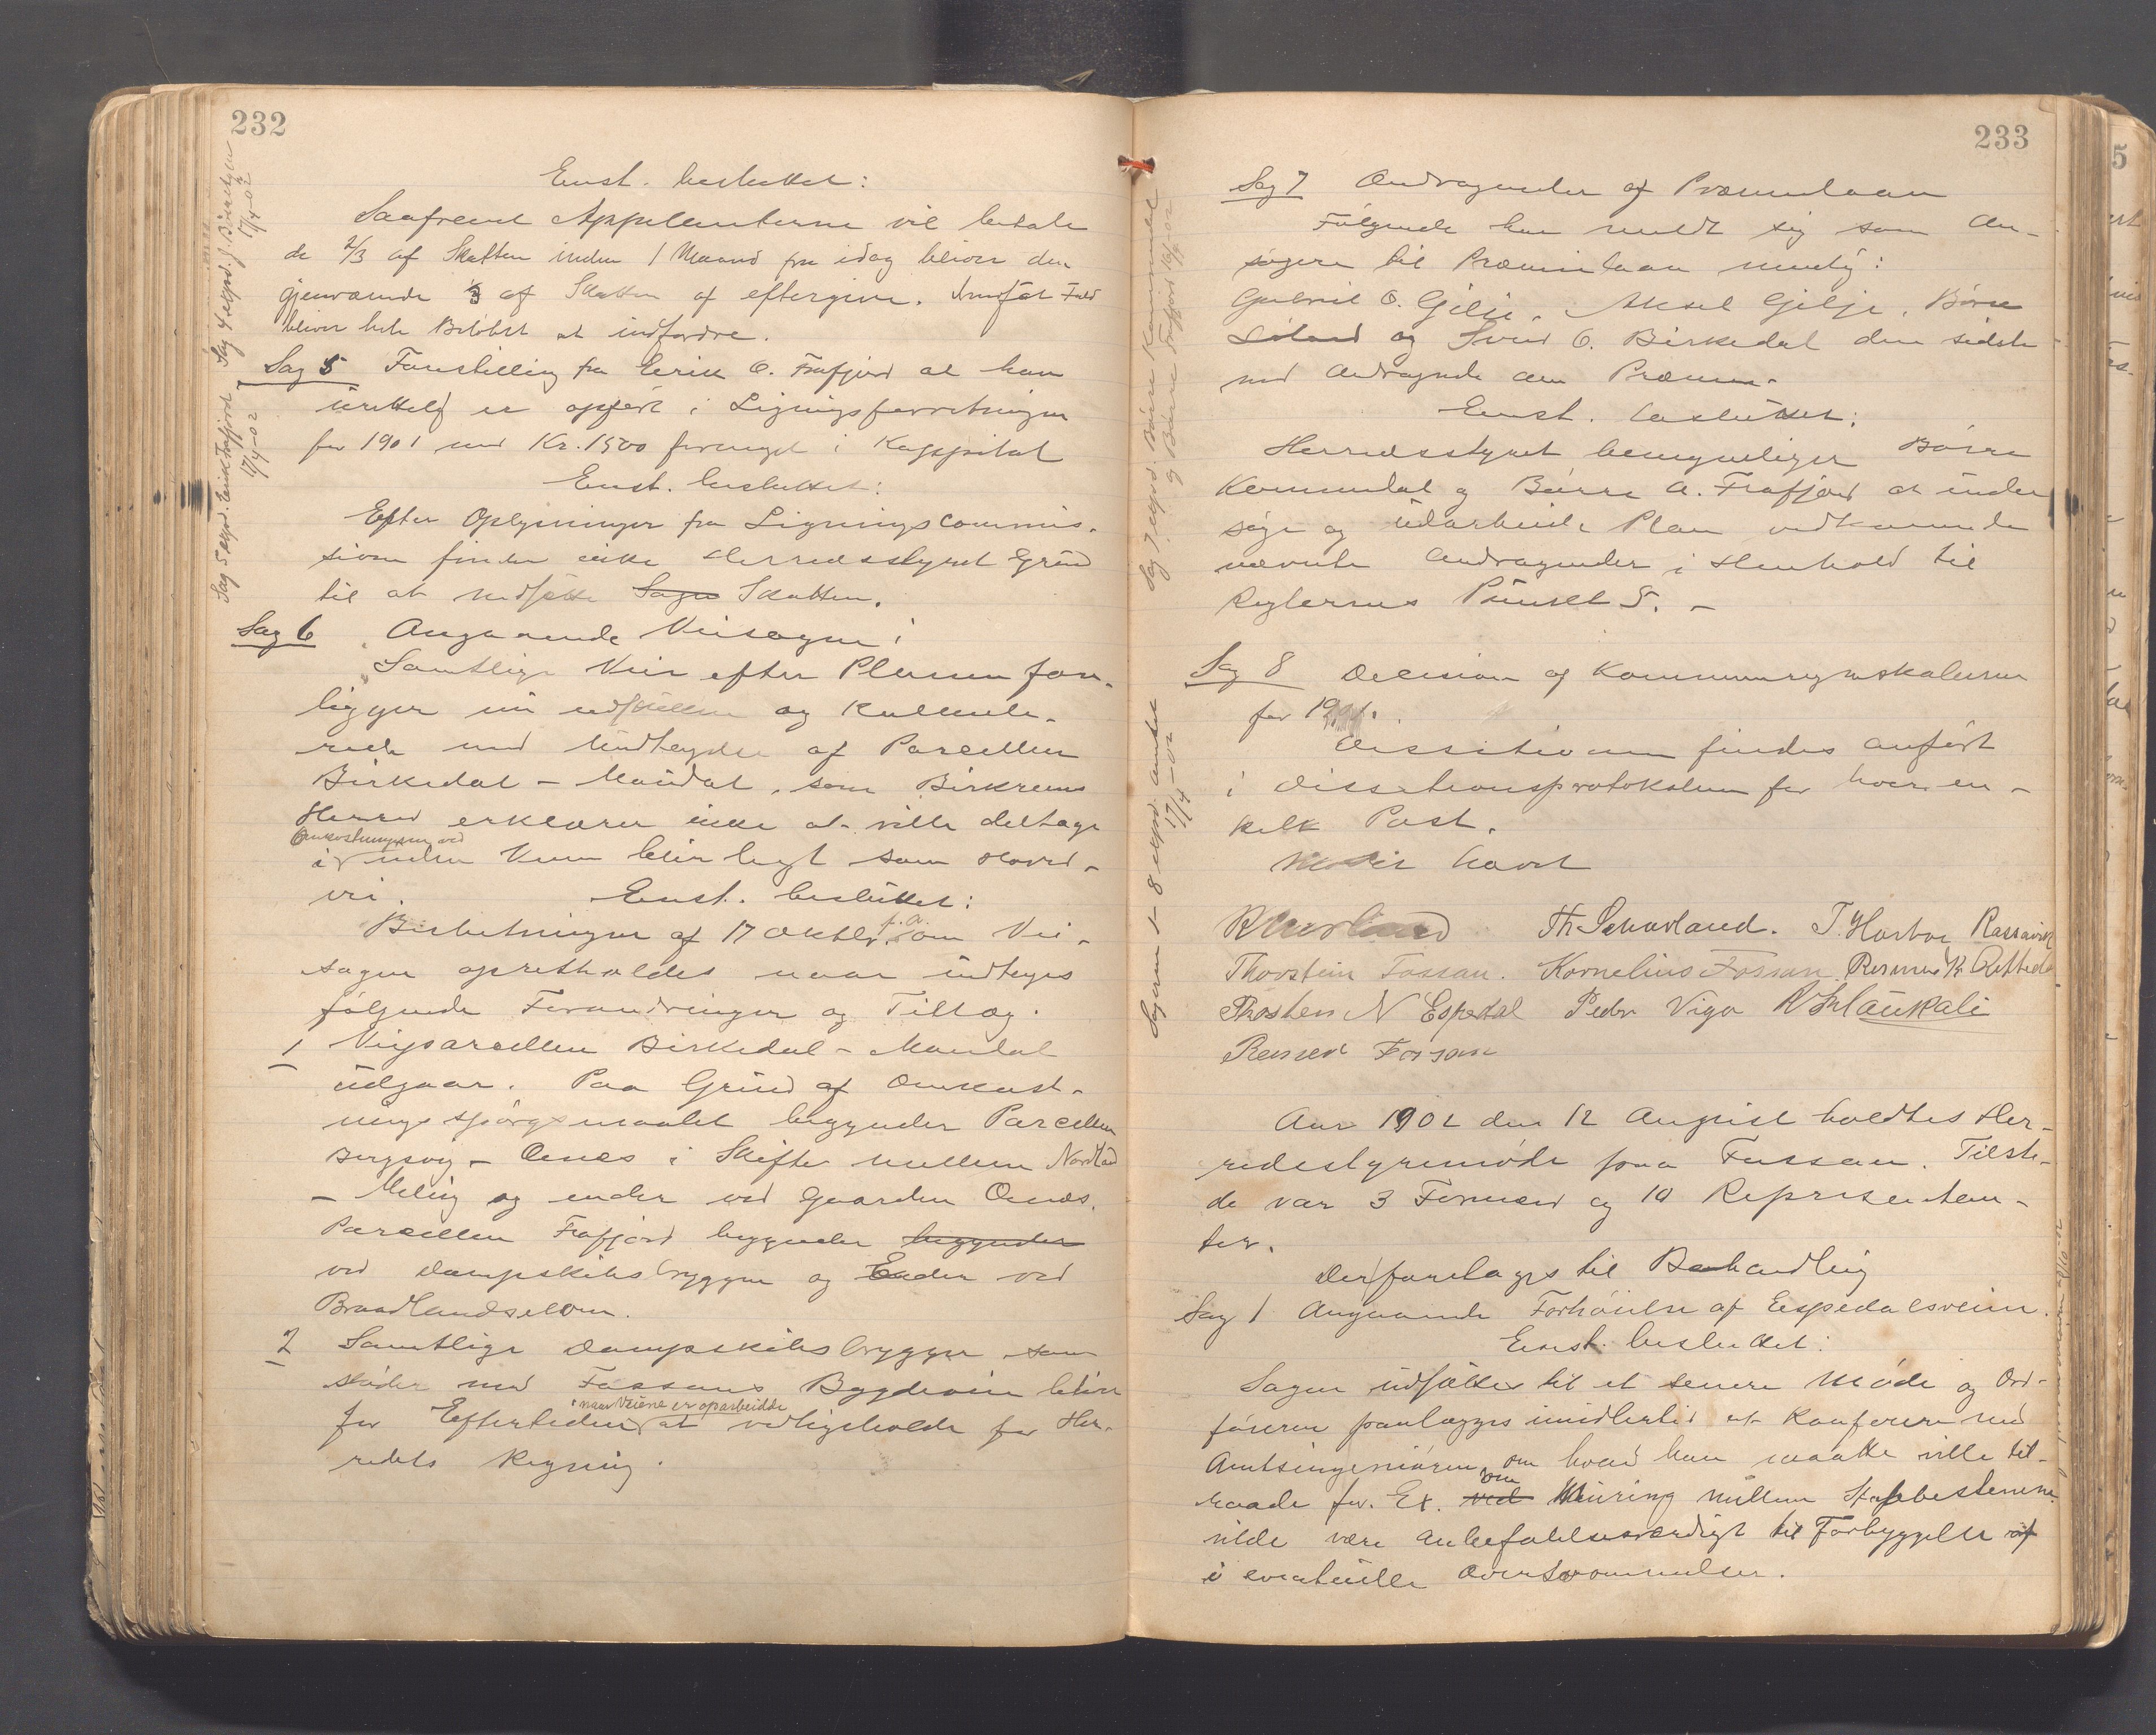 232
Enst. besluttet:
Saafremt Appellanterne vil betale
de 2/3 af Skatten inden 1 Maaned fra idag bliver den
gjenværende 1/3 af Skatten af eftergive. Imodsat Fald
bliver hele Beløbet at indfordre.
Sag 5 Forestilling fra Eerik O. Frafjord at han
urettelig er opført i Ligningsforretningen
for 1901 med Kr. 1500 formeget i Kappital
Enst. besluttet:
Efter Oplysninger fra Ligningscommis-
sionen finder ikke Herredsstyret Grund
til at nedsætte Sagen Skatten.
Sag 6 Angaaende Veisagen:
Samtlige Veie efter Planen fore-
ligger nu udstukken og kalkule-
rede med Undtagelse af Parcellen
Birkedal - Maudal, som Birkrems
Herred erklærer ikke at ville deltage
Omkostningerne ved
i uden Veien blir lagt som Hoved-
vei. Enst. besluttet:
Beslutningen af 17 Oktbr. f.a. om Vei-
sagen opretholdes naar undtages
følgende Forandringer og Tillæg.
1 Veiparcellen Birkedal - Maudal
udgaar. Paa Grund af Omkost-
ningsspørgsmaalet begynder Parcellen
Bergsvig - Oenæs i Skiftet mellem Nordland
- Meling og ender ved Gaarden Oenæs.
Parcellen Frafjord begynder begynder
ved Dampskibsbryggen og Ender ved
Braadlandselven.
2 Samtlige Dampskibsbrygger som
støder med Fossans Bygdevein bliver
naar Veiene er oparbeidde
for Eftertiden at vedligeholde for Her-
redets Regning.
Sag 4 exspd. J. Birkedal
17/4-02
Sag 5 exspd. Eirik Frafjord
17/4-02
233
Sag 7 Andragender af Præmielaan
Følgende har meldt sig som An-
søgere til Præmielaan nemlig:
Gabriel O. Gilje. Aksel Gilje, Børre
Søland og Svend O. Birkedal den sidste
med Andragende om Præmie.
Enst. besluttet:
Herredsstyret bemyndiger Børre
Kommedal og Børre A. Frafjord at under
søge og Udarbeide Plan vedkommende
nævnte Andragender i Henhold til
Reglernes Punkt 5. -
Sag 8 Decision af Kommuneregnskaberne
for 1901.
Dissitionen findes anført
i Dissitionsprotokolen for hver en-
kelt Post.
Møder hævet
Th. Scharland. T. Harboe Rassavik
Thorstein Fossan. Kornelius Fossan Rasmus K. Rettedal
Thosten N Espedal Peder Viga R Haukali
Rasmus Fossan
Aar 1902 den 12 August holdtes Her-
redsstyremøde paa Fossan. Tilste-
de var 3 Formænd og 10 Representan-
ter.
Derforetages til Behandling
Sag 1 Angaaende Forhøielse af Espedalsveien.
Enst. besluttet:
Sagen udsættes til et senere Møde og Ord-
føreren paalægges imidlertid at Konferere med
Amtsingeniøren om hvad han maatte ville til-
raade for. Ex. ved om Muring mellem Stabbestenene
vilde være anbefalelsesværdigt til Forbyggelse af
i eventuelle Oversvømmelser.
Sag 7 exspd. Børre Kommedal
og Børre Frafjord 16/4-02
Sagerne 1-8 exspd. Amtet
17/4-02